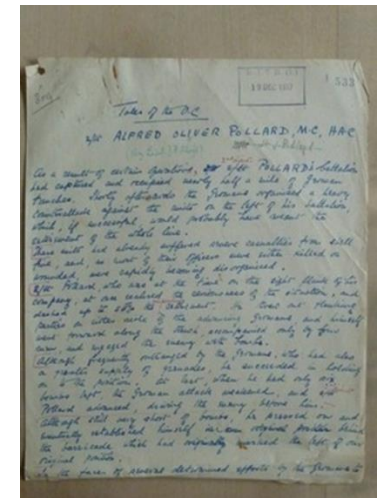 19 DEC 1917
533
Tales of the V.C.
2/Lt ALFRED OLIVER POLLARD, M.C, HAC
As a result of certain operations, 2/Lt POLLARD's battalion
had captured and occupied nearly half a mile of German
trenches. Shortly afterwards the Germans organised a heavy
counterattack against the units on the left of his battalion,
which, if successful, would probably have meant the
retirement of the whole line.
These units had already suffered severe casualties from shell
fire, and, as most of their officers were either killed or
wounded, were rapidly becoming disorganised.
2/Lt Pollard, who was at the time on the right flank of his
company, at once realised the seriousness of the situation, and
dashed up to stop the retirement. He sent out flanking
parties on either side of the advancing Germans and himself
went forward along the trench, accompanied only by four
men and engaged the enemy with bombs.
Although frequently outranged by the Germans, who had also
a greater supply of grenades, he succeeded in holding
on to the position. At last, when he had only six
bombs left, the German attack weakened, and
Pollard advanced, driving the enemy before him.
Although still very short of bombs, he pressed on and
eventually established himself in our original position behind
the barricade which had originally marked the left of our
original position.
In the face of several determined efforts by the Germans to